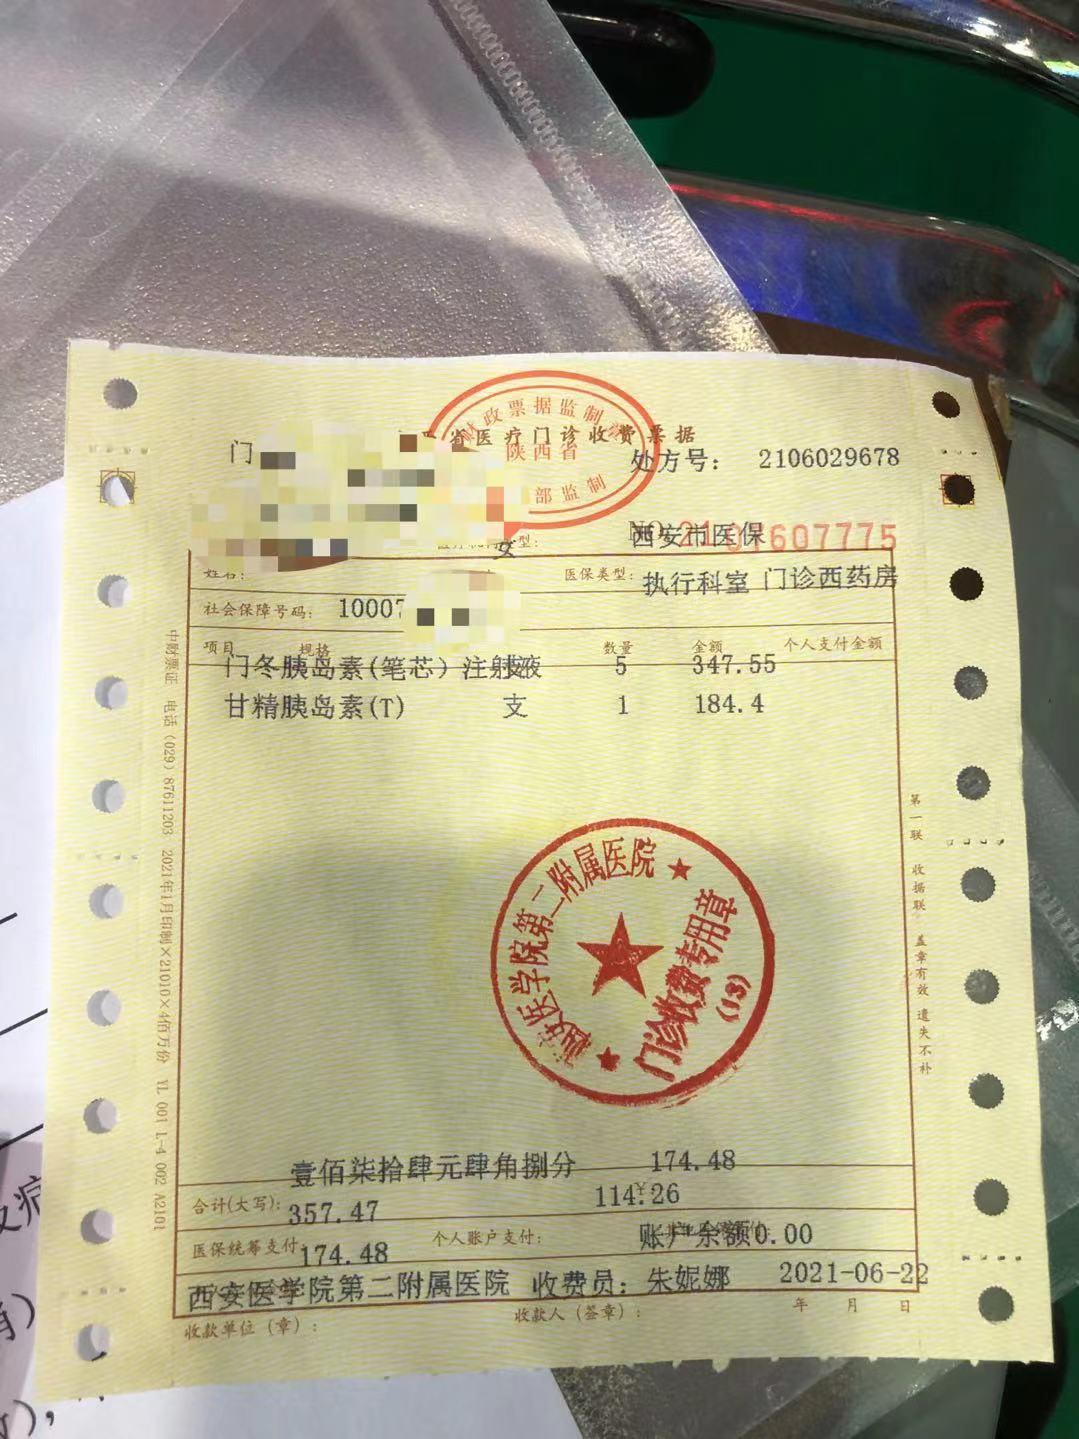 财政票据监制
省医疗门诊收费票据
陕西省
部监制
门
处方号： 2106029678
西安市医保
女
型：
姓名：
医保类型：
执行科室 门诊西药房
社会保障号码： 10007
项目 规格 数量 金额 个人支付金额
门冬胰岛素(笔芯）注射液 支 5 347.55
甘精胰岛素(T) 支 1 184.4
西安医学院第二附属医院
门诊收费专用章
(13)
壹佰柒拾肆元肆角捌分 174.48
合计(大写)： 357.47 114.26
医保统筹支付： 174.48 个人账户支付： 账户余额0.00
西安医学院第二附属医院 收费员： 朱妮娜 2021-06-22
收款单位（章）： 收款人（签章）： 年 月 日
中财票证 电话（029）87611203 2021年1月印制×21010×4佰万份 YL 001 L-4 002 A2101
第一联 收据联 盖章有效 遗失不补